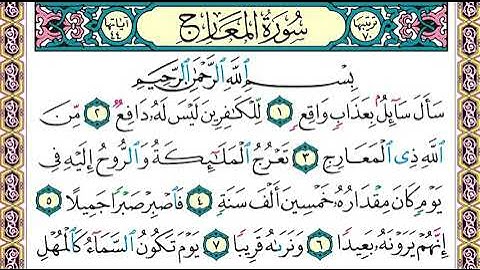 ترتيبها ٧٠ سُورَةُ المَعَارِجِ آياتها ٤٤
بِسْمِ ٱللَّهِ ٱلرَّحْمَٰنِ ٱلرَّحِيمِ
سَأَلَ سَآئِلٌۢ بِعَذَابٍ وَاقِعٍ ١ لِّلْكَٰفِرِينَ لَيْسَ لَهُۥ دَافِعٌ ٢ مِّنَ
ٱللَّهِ ذِى ٱلْمَعَارِجِ ٣ تَعْرُجُ ٱلْمَلَٰٓئِكَةُ وَٱلرُّوحُ إِلَيْهِ فِى
يَوْمٍ كَانَ مِقْدَارُهُۥ خَمْسِينَ أَلْفَ سَنَةٍ ٤ فَٱصْبِرْ صَبْرًا جَمِيلًا ٥
إِنَّهُمْ يَرَوْنَهُۥ بَعِيدًا ٦ وَنَرَىٰهُ قَرِيبًا ٧ يَوْمَ تَكُونُ ٱلسَّمَآءُ كَٱلْمُهْلِ